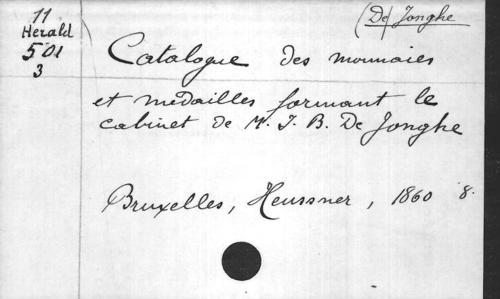 11
Herald
501
3
(De) Jonghe
Catalogue des monnaies
et médailles formant le
cabinet de M. J. B. De Jonghe
Bruxelles, Heussner, 1860 8.